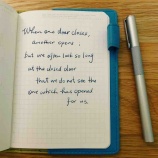 When one door closes,
another opens,
but we often look so long
at the closed door
that we do not see the
one which has opened
for us.